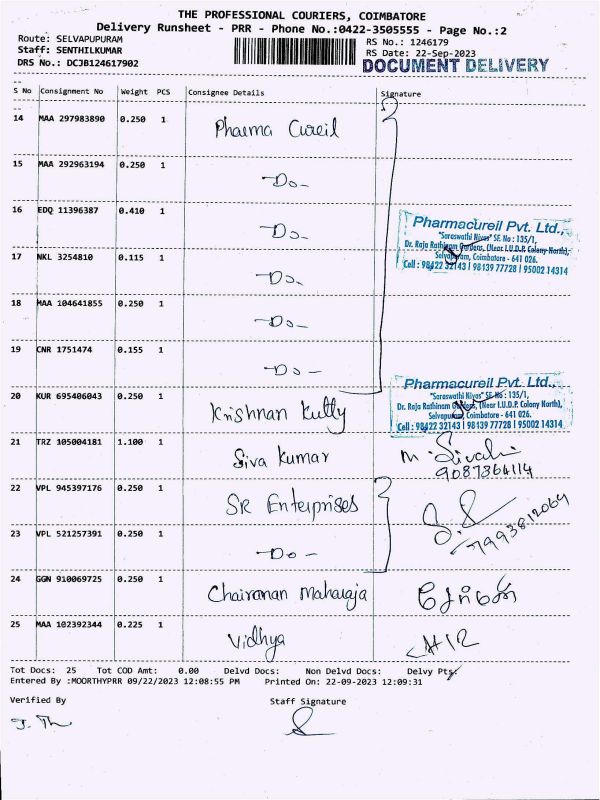 THE PROFESSIONAL COURIERS, COIMBATORE
Delivery Runsheet - PRR - Phone No.:0422-3505555 - Page No.:2
Route: SELVAPUPURAM
RS No.: 1246179
Staff: SENTHILKUMAR
RS Date: 22-Sep-2023
DRS No.: DCJB124617902
DOCUMENT DELIVERY
S No Consignment No Weight PCS Consignee Details Signature
14 MAA 297983890 0.250 1 Pharma Cureil
15 MAA 292963194 0.250 1 -Do-
16 EDQ 11396387 0.410 1 -Do-
Pharmacureil Pvt. Ltd.,
"Saraswathi Nivas" SF. No : 135/1,
Dr. Raja Rathinam Gardens, (Near I.U.D.P. Colony North),
Selvapuram, Coimbatore - 641 026.
Cell : 98422 32143 | 98139 77728 | 95002 14314
17 NKL 3254810 0.115 1 -Do-
18 MAA 104641855 0.250 1 -Do-
19 CNR 1751474 0.155 1 -Do-
Pharmacureil Pvt. Ltd.,
"Saraswathi Nivas" SF. No : 135/1,
Dr. Raja Rathinam Gardens, (Near I.U.D.P. Colony North),
Selvapuram, Coimbatore - 641 026.
Cell : 98422 32143 | 98139 77728 | 95002 14314
20 KUR 695406043 0.250 1 Krishnan Kutty
21 TRZ 105004181 1.100 1 Siva Kumar M. Sivali
9087364114
22 VPL 945397176 0.250 1 SR Enterprises
7993812064
23 VPL 521257391 0.250 1 -Do-
24 GGN 910069725 0.250 1 Chairanan Maharaja
25 MAA 102392344 0.225 1 Vidhya
Tot Docs: 25 Tot COD Amt: 0.00 Delvd Docs: Non Delvd Docs: Delvy Pts:
Entered By :MOORTHYPRR 09/22/2023 12:08:55 PM Printed On: 22-09-2023 12:09:31
Verified By Staff Signature